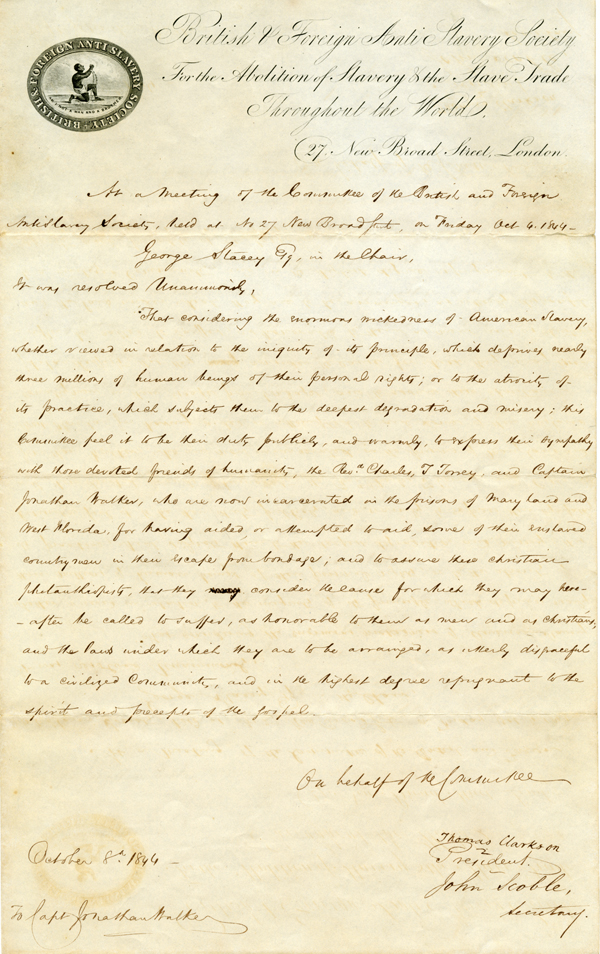 BRITISH & FOREIGN ANTI SLAVERY SOCIETY
British & Foreign Anti Slavery Society
For the Abolition of Slavery & the Slave Trade
Throughout the World.
27, New Broad Street, London.
At a Meeting of the Committee of the British and Foreign
AntiSlavery Society, held at No 27 New Broad St, on Friday Oct 4. 1844 –
George Stacey Esq, in the Chair,
It was resolved Unanimously,
"That considering the enormous wickedness of American Slavery,
whether viewed in relation to the iniquity of its principle, which deprives nearly
three millions of human beings of their personal rights; or to the atrocity of
its practice, which subjects them to the deepest degradation and misery; this
Committee feel it to be their duty publicly, and warmly, to express their sympathy
with those devoted friends of humanity, the Revd. Charles, T Torrey, and Captain
Jonathan Walker, who are now incarcerated in the prisons of Maryland and
West Florida, for having aided, or attempted to aid, some of their enslaved
countrymen in their escape from bondage; and to assure these christian
philanthropists, that they consider the cause for which they may here-
-after be called to suffer, as honorable to them as men and as christians,
and the Laws under which they are to be arranged, as utterly disgraceful
to a civilized Community, and in the highest degree repugnant to the
spirit and precepts of the gospel.
On behalf of the Committee
Thomas Clarkson
President.
October 8th 1844 –
John Scoble,
Secretary.
To Capt Jonathan Walker